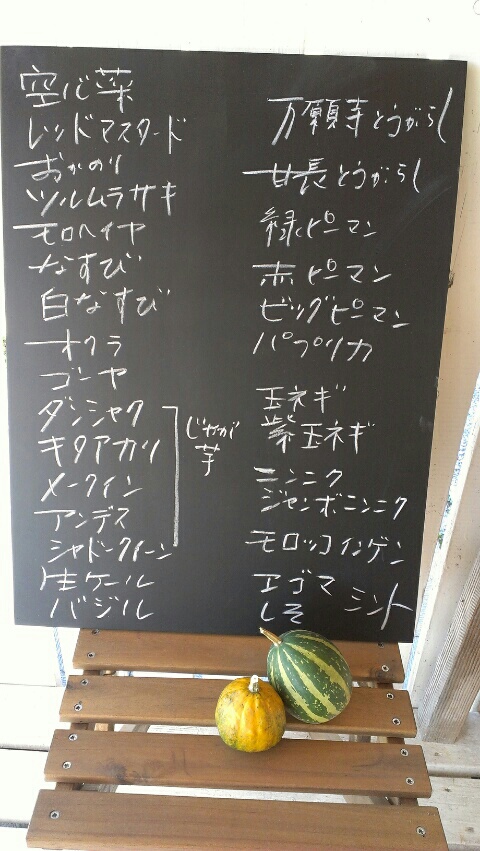 空心菜
レッドマスタード
おかのり
ツルムラサキ
モロヘイヤ
なすび
白なすび
オクラ
ゴーヤ
ダンシャク
キタアカリ
メークイン
アンデス
シャドークイーン
じゃが
芋
生ケール
バジル
万願寺とうがらし
甘長とうがらし
緑ピーマン
赤ピーマン
ビッグピーマン
パプリカ
玉ネギ
紫玉ネギ
ニンニク
ジャンボニンニク
モロッコインゲン
エゴマ
しそ ミント